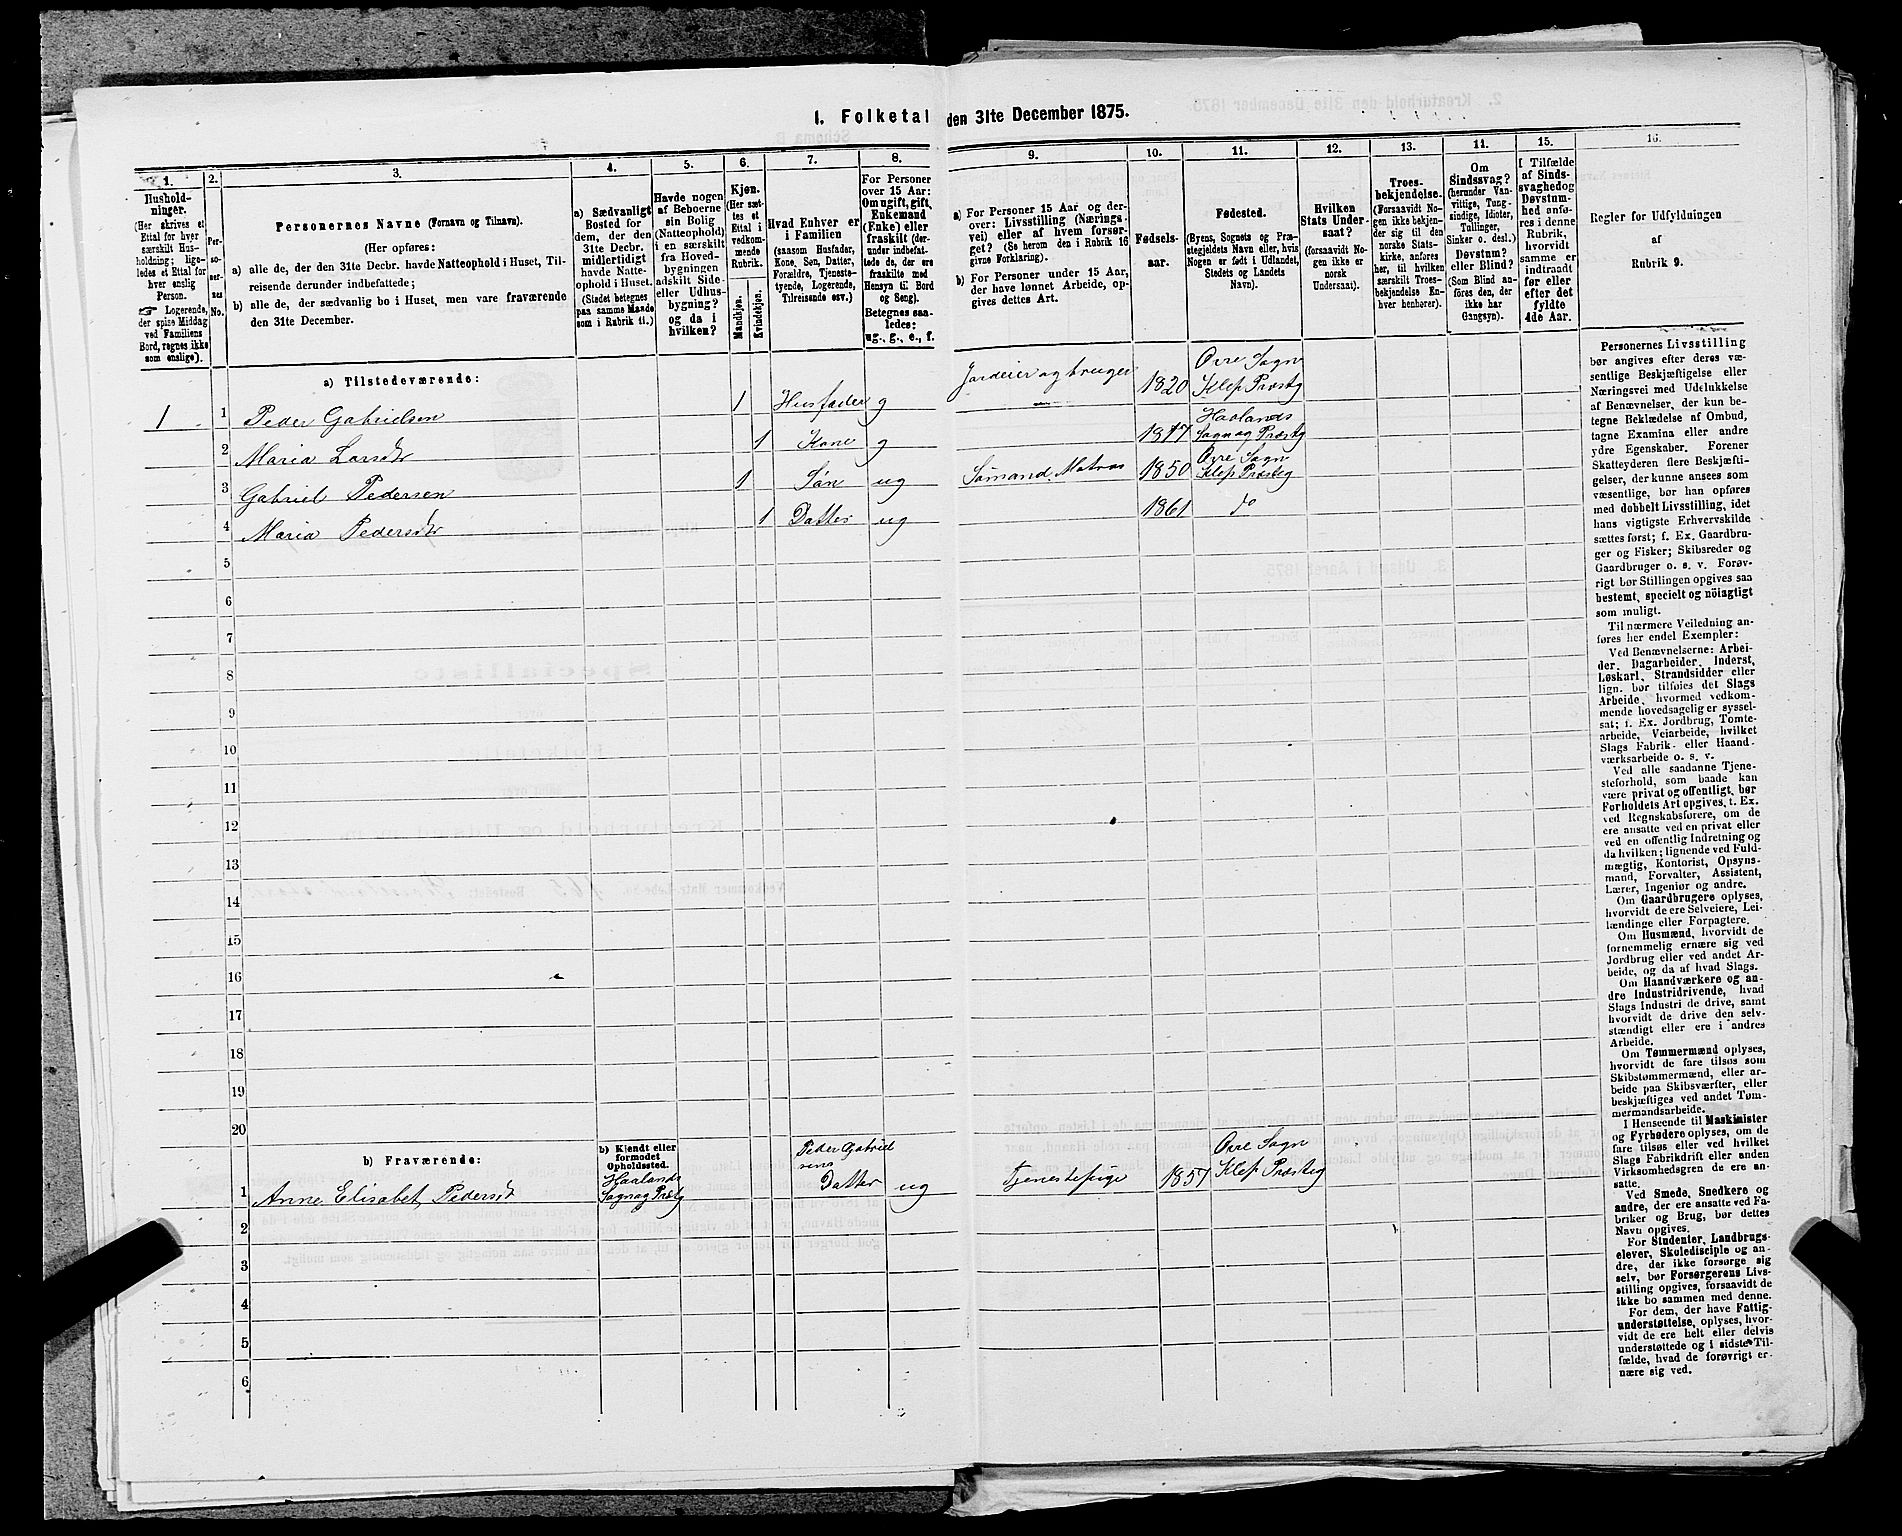 1. Folketal den 31te December 1875.
1.
Hushold-
ninger.
(Her skrives et
Ettal for hver
særskilt Hus-
holdning; lige-
ledes et Ettal for
hver enslig
Person.
☞ Logerende,
der spise Middag
ved Familiens
Bord, regnes ikke
som enslige).
2.
Per-
so-
ner-
nes
No.
3.
Personernes Navne (Fornavn og Tilnavn).
(Her opføres:
a) alle de, der den 31te Decbr. havde Natteophold i Huset, Til-
reisende derunder indbefattede;
b) alle de, der sædvanlig bo i Huset, men vare fraværende
den 31te December.
4.
a) Sædvanligt
Bosted for
dem, der den
31te Decbr.
midlertidigt
havde Natte-
ophold i Huset.
(Stedet betegnes
paa samme Maade
som i Rubrik 11.)
5.
Havde nogen
af Beboerne
sin Bolig
(Natteophold)
i en særskilt
fra Hoved-
bygningen
adskilt Side-
eller Udhus-
bygning?
og da i
hvilken?
6.
Kjøn.
(Her sæt-
tes et
Ettal i
vedkom-
mende
Rubrik.
Mandkjøn.
Kvindekjøn.
7.
Hvad Enhver er
i Familien
(saasom Husfader,
Kone, Søn, Datter,
Forældre, Tjeneste-
tyende, Logerende,
Tilreisende osv.)
8.
For Personer
over 15 Aar:
Om ugift, gift,
Enkemand
(Enke) eller
fraskilt (der-
under indbefat-
tede de, der ere
fraskilte med
Hensyn til Bord
og Seng).
Betegnes saa-
ledes:
ug., g., e., f.
9.
a) For Personer 15 Aar og der-
over: Livsstilling (Nærings-
vei) eller af hvem forsør-
get? (Se herom den i Rubrik 16
givne Forklaring).
b) For Personer under 15 Aar,
der have lønnet Arbeide, op-
gives dettes Art.
10.
Fødsels-
aar.
11.
Fødested.
(Byens, Sognets og Præ-
stegjeldets Navn eller, hvis
Nogen er født i Udlandet,
Stedets og Landets
Navn).
12.
Hvilken
Stats Under-
saat?
(forsaavidt No-
gen ikke er
norsk
Undersaat).
13.
Troes-
bekjendelse.
(Forsaavidt No-
gen ikke bekjen-
der sig til den
norske Stats-
kirke, anføres
her, til hvilken
særskilt Troes-
bekjendelse En-
hver henhører).
11.
Om
Sindssvag?
(herunder Van-
vittige, Tung-
sindige, Idioter,
Tullinger,
Sinker o. desl.)
Døvstum?
eller Blind?
(Som Blind an-
føres den, der
ikke har
Gangsyn).
15.
I Tilfælde
af Sinds-
svaghed og
Døvstum-
hed anfø-
res i denne
Rubrik,
hvorvidt
samme er
indtraadt
før eller
efter det
fyldte
4de Aar.
16.
Regler for Udfyldningen
af
Rubrik 9.
a) Tilstedeværende:
1 1 Peder Gabrielsen 1 Husfader g Jordeier og bruger 1820 Ovre Sogn Klep Præstg
2 Maria Larsdtr 1 Kone g 1817 Haalands Sogn og Præstg
3 Gabriel Pedersen 1 Søn ug Sømand. Matros 1850 Ovre Sogn Klep Præsteg
4 Maria Pedersdtr 1 Datter ug 1861 do
5
6
7
8
9
10
11
12
13
14
15
16
17
18
19
20
b) Fraværende:
b) Kjendt eller
formodet
Opholdssted.
1 Anne Elisabet Pedersdt Haalands Sogn og Præstg Peder Gabriel sens Datter ug Tjenestepige 1857 Ovre Sogn Klep Præsteg
2
3
4
5
6
Personernes Livsstilling
bør angives efter deres væ-
sentlige Beskjæftigelse eller
Næringsvei med Udelukkelse
af Benævnelser, der kun be-
tegne Beklædelse af Ombud,
tagne Examina eller andre
ydre Egenskaber. Forener
Skatteyderen flere Beskjæfti-
gelser, der kunne ansees som
væsentlige, bør han opføres
med dobbelt Livsstilling, idet
hans vigtigste Erhvervskilde
sættes først; f. Ex. Gaardbru-
ger og Fisker; Skibsreder og
Gaardbruger o. s. v. Forøv-
rigt bør Stillingen opgives saa
bestemt, specielt og nöiagtigt
som muligt.
Til nærmere Veiledning an-
føres her endel Exempler:
Ved Benævnelserne: Arbei-
der, Dagarbeider, Inderst,
Løskarl, Strandsidder eller
lign. bør tilføies det Slags
Arbeide, hvormed vedkom-
mende hovedsagelig er syssel-
sat; f. Ex. Jordbrug, Tomte-
arbeide, Veiarbeide, hvilket
Slags Fabrik- eller Haand-
værksarbeide o. s. v.
Ved alle saadanne Tjene-
steforhold, som baade kan
være privat og offentligt, bør
Forholdets Art opgives, t. Ex.
ved Regnskabsførere, om de
ere ansatte ved en privat eller
ved en offentlig Indretning og
da hvilken; lignende ved Fuld-
mægtig, Kontorist, Opsyns-
mand, Forvalter, Assistent,
Lærer, Ingeniør og andre.
Om Gaardbrugere oplyses,
hvorvidt de ere Selveiere, Lei-
lændinge eller Forpagtere.
Om Husmænd, hvorvidt de
fornemmelig ernære sig ved
Jordbrug eller ved andet Ar-
beide, og da af hvad Slags.
Om Haandværkere og an-
dre Industridrivende, hvad
Slags Industri de drive, samt
hvorvidt de drive den selv-
stændigt eller ere i andres
Arbeide.
Om Tømmermænd oplyses,
hvorvidt de fare tilsøs som
Skibstømmermænd, eller ar-
beide paa Skibsværfter, eller
beskjæftiges ved andet Tøm-
mermandsarbeide.
I Henseende til Maskinister
og Fyrbødere oplyses, om de
fare tilsøs eller ved hvilket
Slags Fabrikdrift eller anden
Virksomhedsgren de ere an-
satte.
Ved Smede, Snedkere og
andre, der ere ansatte ved Fa-
briker og Brug, bør dettes
Navn opgives.
For Studenter, Landbrugs-
elever, Skoledisciple og an-
dre, der ikke forsørge sig
selv, bør Forsørgerens Livs-
stilling opgives, forsaavidt de
ikke bo sammen med denne.
For dem, der have Fattig-
understøttelse, oplyses, hvor-
vidt de ere helt eller delvis
understøttede og i sidste Til-
fælde, hvad de forøvrigt er-
nære sig ved.